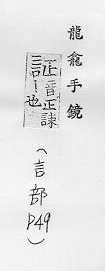 龍龕手鏡
証音正諫
也
（言部P49）